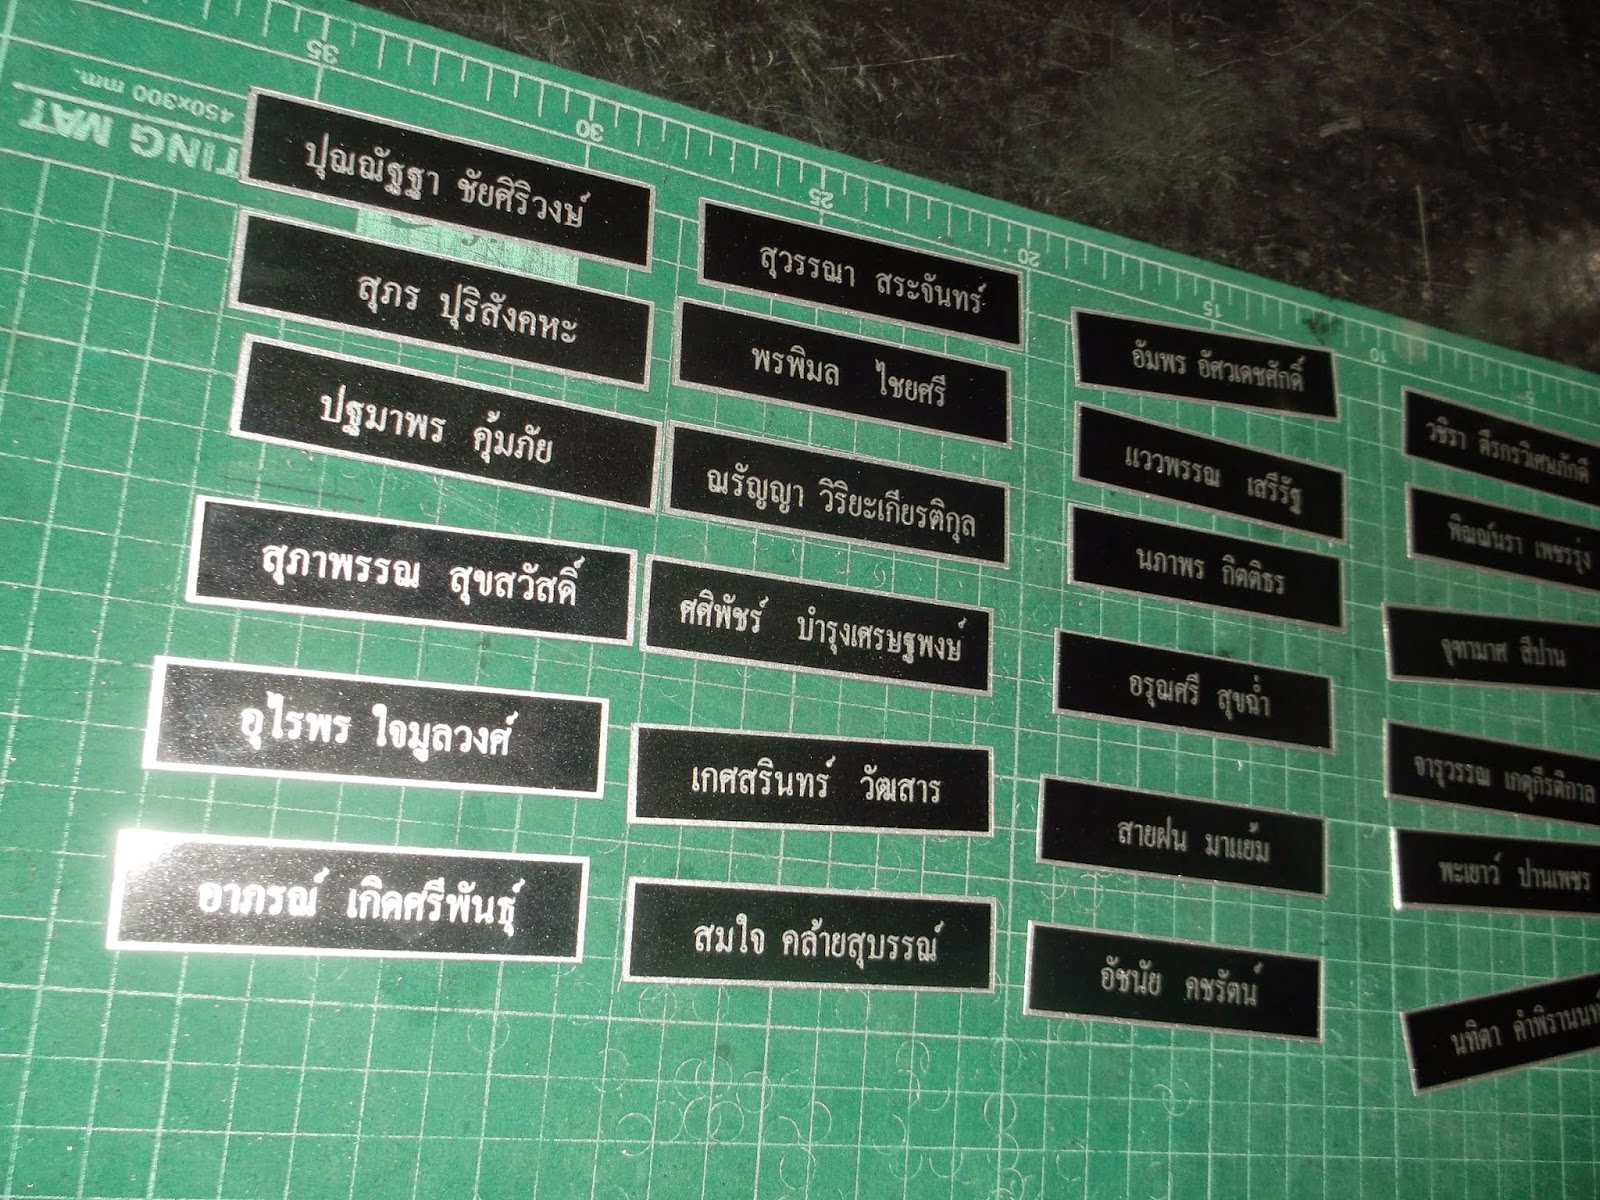 35
30
25
20
15
10
5
450x300 mm.
TING MAT
ปุณณัฐฐา ชัยศิริวงษ์
สุภร ปุริสังคหะ
ปฐมาพร คุ้มภัย
สุภาพรรณ สุขสวัสดิ์
อุไรพร ใจมูลวงศ์
อาภรณ์ เกิดศรีพันธุ์
สุวรรณา สระจันทร์
พรพิมล ไชยศรี
ณรัญญา วิริยะเกียรติกุล
ศศิพัชร์ บำรุงเศรษฐพงษ์
เกศสรินทร์ วัฒสาร
สมใจ คล้ายสุบรรณ์
อัมพร อัศวเดชศักดิ์
แววพรรณ เสรีรัฐ
นภาพร กิตติธร
อรุณศรี สุขฉ่ำ
สายฝน มาแย้ม
อัชนัย คชรัตน์
วชิรา ตีรกรวิเศษภักดี
พิณณ์นรา เพชรรุ่ง
จุฑามาศ สีปาน
จารุวรรณ เกตุกีรติกาล
พะเยาว์ ปานเพชร
นทิตา